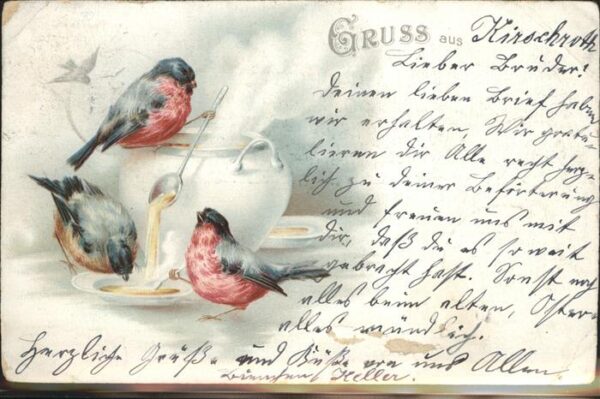 GRUSS aus Kirschroth
Lieber Bruder!
Deinen lieben Brief haben
wir erhalten, Wir gratu-
lieren dir Alle recht herz-
lich zu deiner Beförterung
und freuen uns mit
dir, daß du es so weit
gebracht hast. Sonst noch
alles beim alten, Ostern
alles mündlich.
Herzliche Grüße und Küße von uns Allen
Heller.